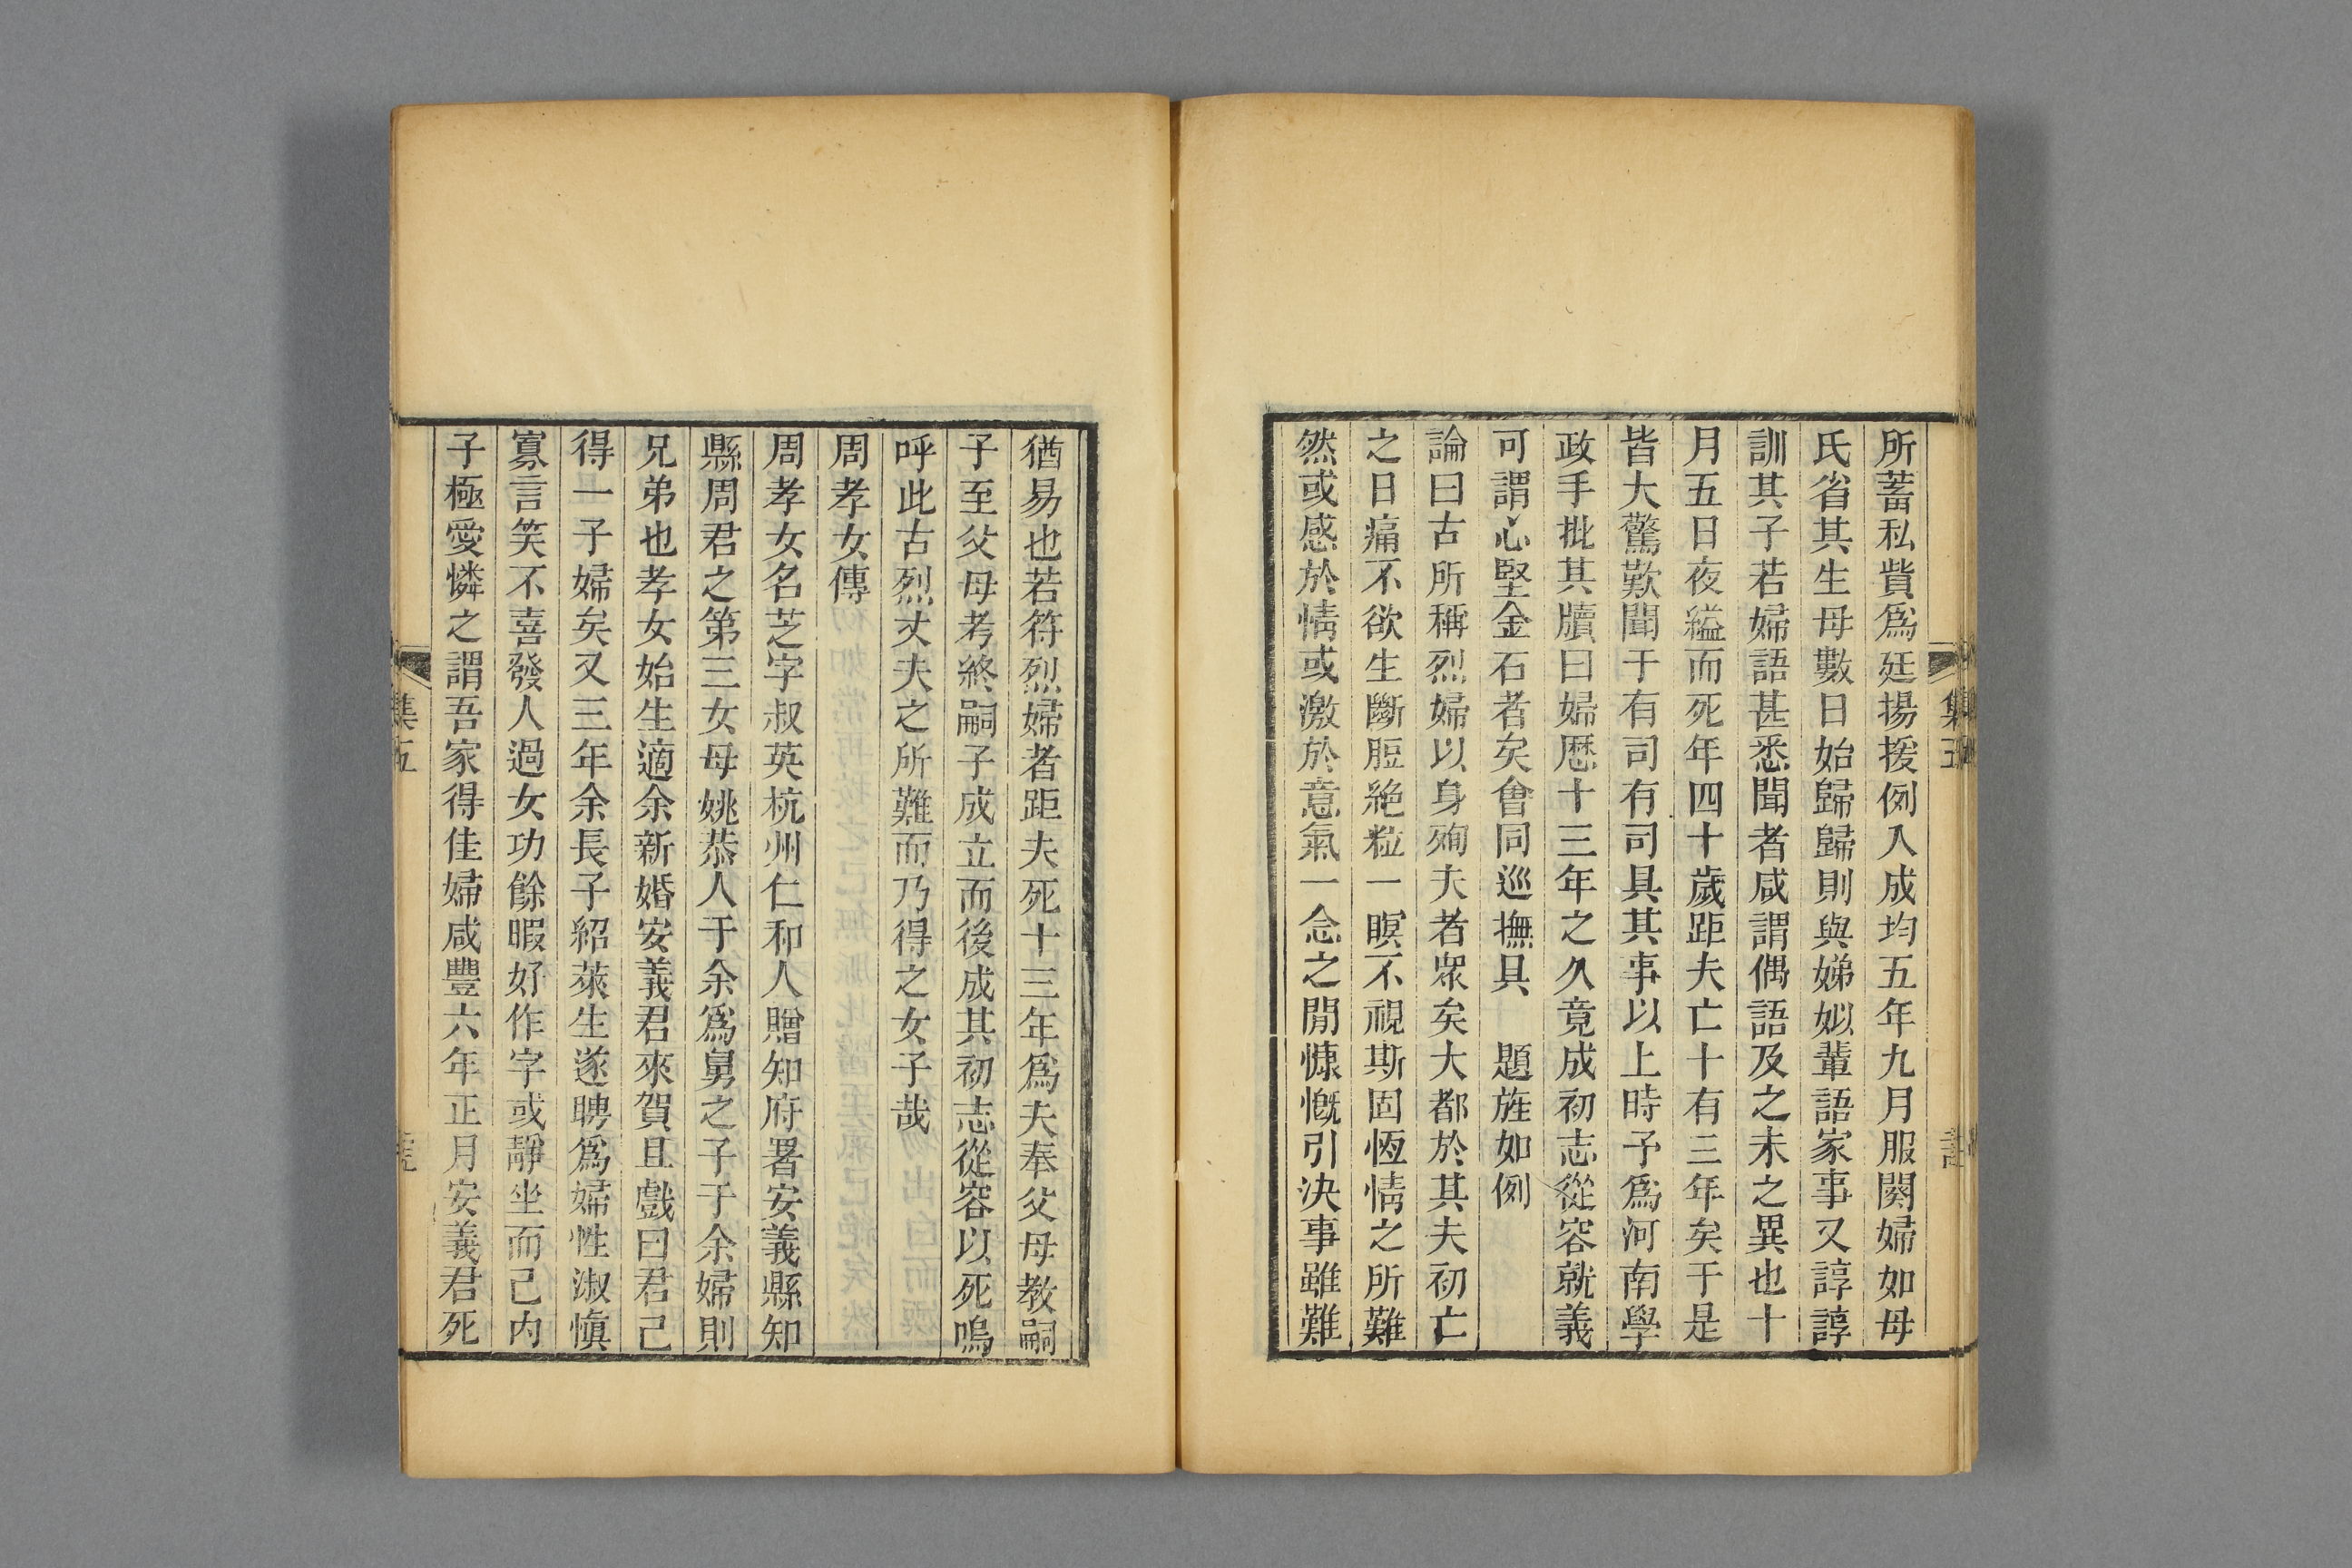 所蓄私貲爲廷揚援例入成均五年九月服闋婦如母
氏省其生母數日始歸歸則與娣姒輩語家事又諄諄
訓其子若婦語甚悉聞者咸謂偶語及之未之異也十
月五日夜縊而死年四十歲距夫亡十有三年矣于是
皆大驚歎聞于有司有司具其事以上時予爲河南學
政手批其牘曰婦歷十三年之久竟成初志從容就義
可謂心堅金石者矣會同巡撫具　題旌如例
論曰古所稱烈婦以身殉夫者衆矣大都於其夫初亡
之日痛不欲生斷脰絶粒一瞑不視斯固恆情之所難
然或感於情或激於意氣一念之閒慷慨引決事雖難
猶易也若符烈婦者距夫死十三年爲夫奉父母教嗣
子至父母考終嗣子成立而後成其初志從容以死嗚
呼此古烈丈夫之所難而乃得之女子哉
周孝女傳
周孝女名芝字叔英杭州仁和人贈知府署安義縣知
縣周君之第三女母姚恭人于余爲舅之子于余婦則
兄弟也孝女始生適余新婚安義君來賀且戲曰君己
得一子婦矣又三年余長子紹萊生遂聘爲婦性淑愼
寡言笑不喜發人過女功餘暇好作字或靜坐而己內
子極愛憐之謂吾家得佳婦咸豐六年正月安義君死
集五